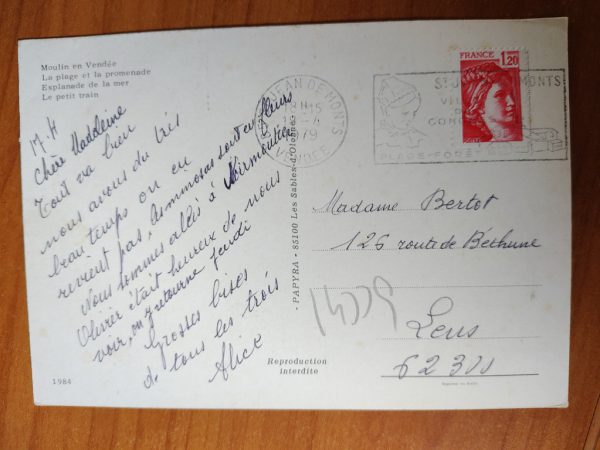 Moulin en Vendée
La plage et la promenade
Esplanade de la mer
Le petit train
17.4
Chère Madeleine
Tout va bien
nous avons du très
beau temps on en
revient pas, les mimosas sont en fleurs
Nous sommes allés à Noirmoutier
Olivier était heureux de nous
voir, on y retourne jeudi
Grosses bises
de tous les trois
Alice
1984
- PAPYRA - 85100 Les Sables-d'Olonne -
Reproduction
interdite
JEAN DE MONTS
1979
VENDEE
ST J MONTS
PLAGE-FORÊT
FRANCE
1,20
Madame Bertot
126 route de Béthune
Lens
62300